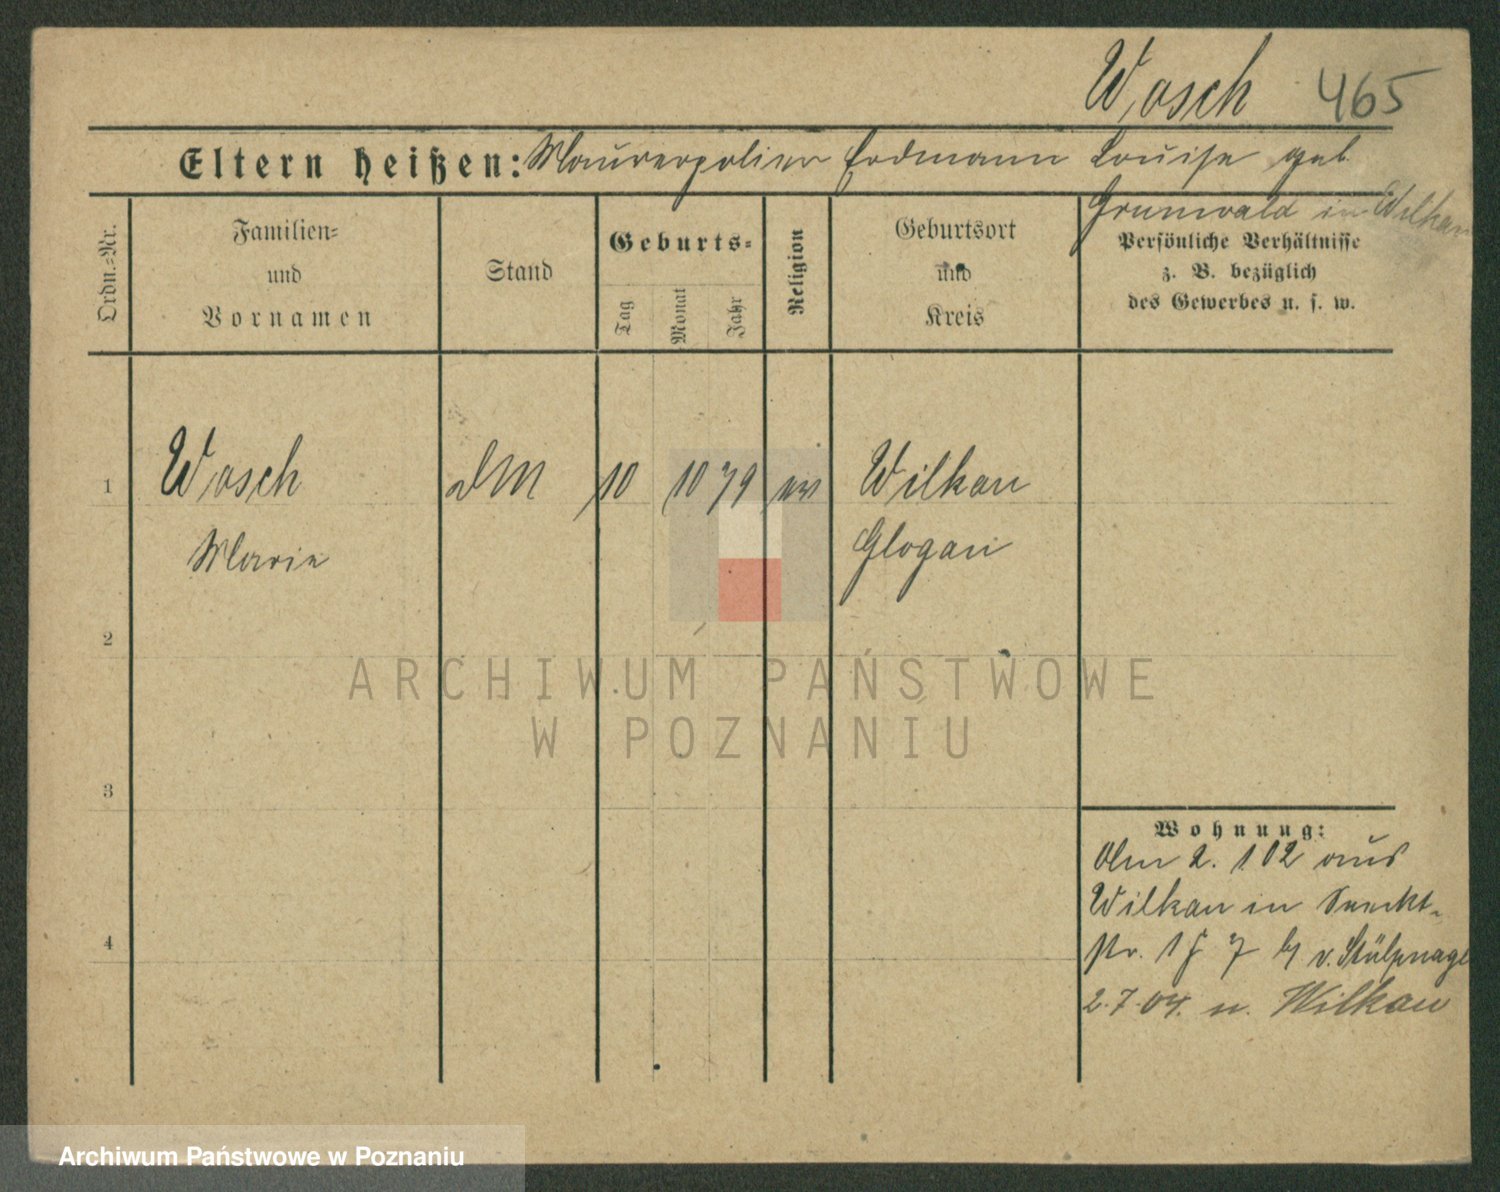 Wosch 465
Eltern heißen: Maurerpolier Erdmann Louise geb
Grunwald in Wilkau
Ordn.=Nr.
Familien=
und
Vornamen
Stand
Geburts=
Tag
Monat
Jahr
Religion
Geburtsort
und
Kreis
Persönliche Verhältnisse
z. B. bezüglich
des Gewerbes u. s. w.
1 Wosch DM 10 10 79 ev Wilkau
Marie Glogau
2
ARCHIWUM PAŃSTWOWE
W POZNANIU
3
Wohnung:
2. 1 02 aus
Wilkau in
str. 1 v. Stülpnagel
4
2.7.04. n. Wilkau
Archiwum Państwowe w Poznaniu